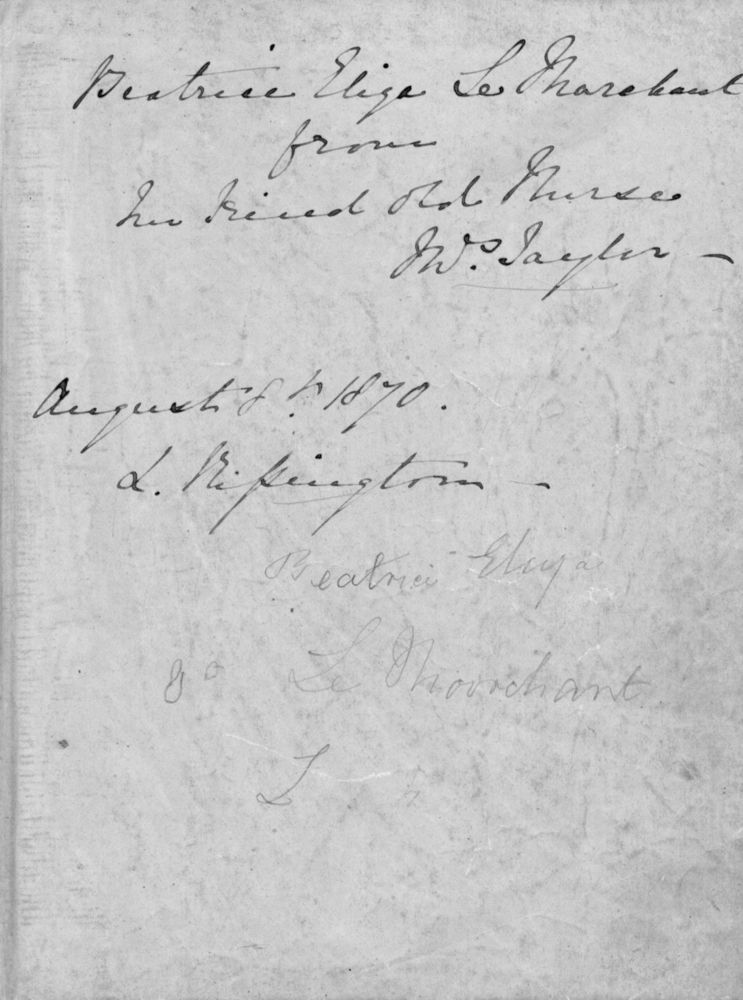 Beatrice Eliza Le Marchant
from
her Friend old Nurse
Mrs. Taylor —
August 8th. 1870.
L. Rissington —
Beatrice Eliza
Le Moorchant
L